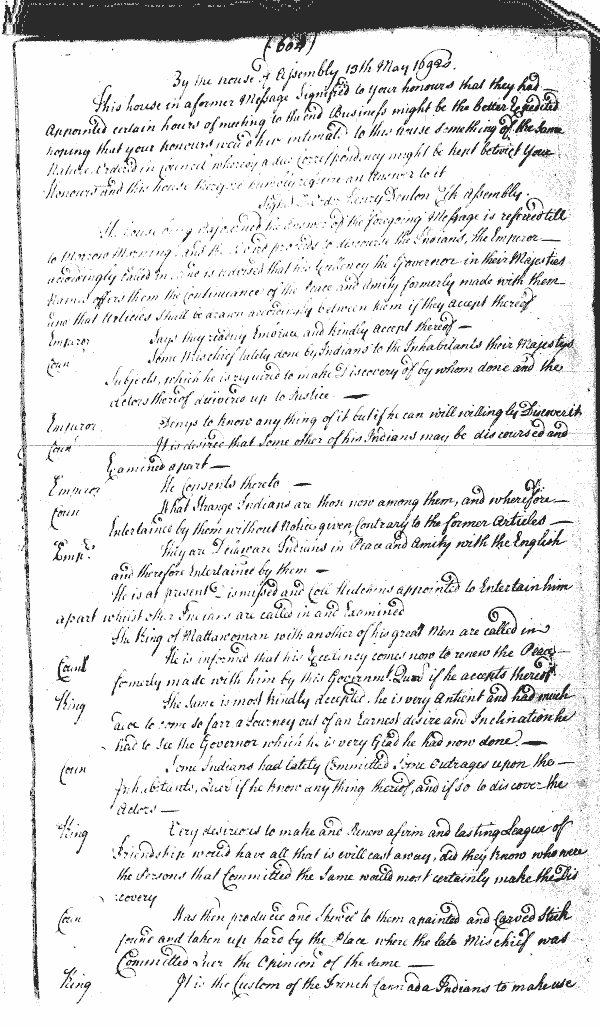 (604)
By the house of Assembly 13th May 1692.
This house in a former Message Signifyed to your honours that they had
Appointed certain hours of meeting to the end Business might be the better Expedited
hoping that your honours would have intimated to this house something of the Same
Nature Ordered in Council whereby a due Correspondency might be kept betwixt Your
Honours and this house therefore humbly require an Answer to it
Signed Order Henry Denton Clk Assembly.
The house being Adjourned the Answer of the foregoing Message is referred till
to Morrow Morning and the Board proceeds to discourse the Indians, the Emperor
accordingly Called in and is advised that his Excellency the Governor in their Majesties
Names offers them the Continuance of the Peace and Amity formerly made with them
and that Articles Shall be drawn accordingly between them if they accept thereof
Emperor Says they readily Embrace and kindly accept thereof —
Coun Some Mischief lately done by Indians to the Inhabitants their Majestys
Subjects, which he is required to make Discovery of by whom done and the
Actors thereof delivered up to Justice. —
Emperor Denys to know any thing of it but if he can will willingly Discover it
Coun It is desired that Some other of his Indians may be discoursed and
Examined apart —
Emperor He Consents thereto —
Coun What Strange Indians are those now among them, and wherefore
Entertained by them without Notice given Contrary to the former Articles —
Empr. They are Delaware Indians in Peace and Amity with the English
and therefore Entertained by them —
He is at present dismissed and Coll Hutchins appointed to Entertain him
apart whilst other Indians are called in and Examined
The King of Mattawoman with another of his great Men are called in
Coun He is informed that his Excellency comes now to renew the Peace
formerly made with him by this Governmt. Quere if he accepts thereof
King The Same is most kindly accepted. he is very Antient and had much
adoe to come so farr a Journey out of an Earnest desire and Inclination he
had to See the Governor which he is very Glad he had now done. —
Coun Some Indians had lately Committed Some Outrages upon the
Inhabitants, Quere if he know any thing thereof, and if so to discover the
Actors —
King Very desireous to make and Renew a firm and lasting League of
Friendship would have all that is evill cast away, did they know who were
the Persons that Committed the Same would most certainly make the Dis
covery
Coun Was then produced and Shewed to them a painted and Carved Stick
found and taken up hard by the Place where the late Mischief was
Committed Quere the Opinion of the same —
King It is the Custom of the French Cannada Indians to make use